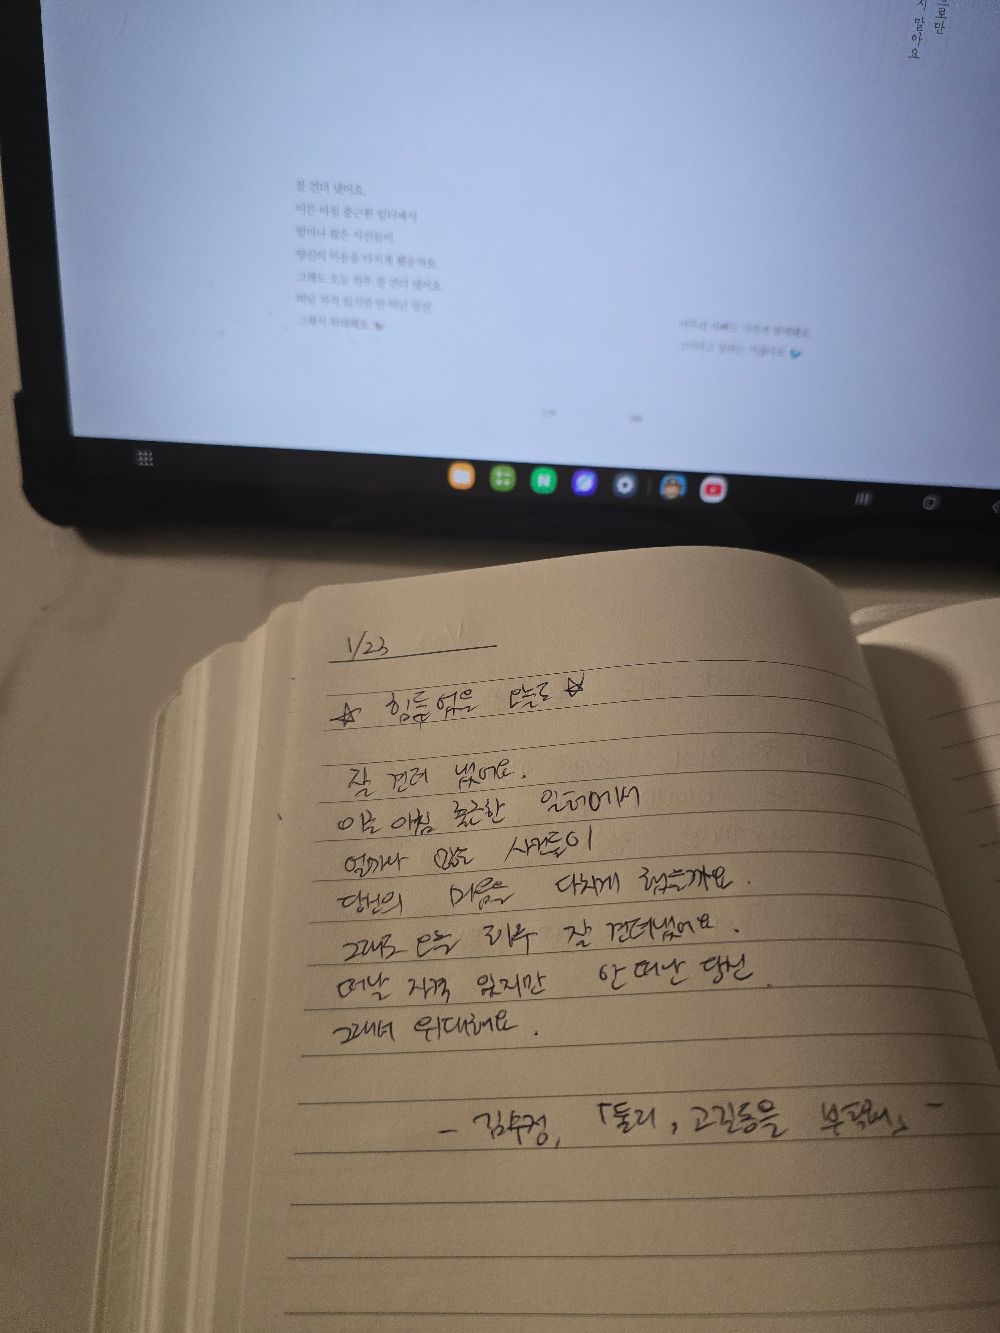 으로만
지 말아요
잘 견뎌 냈어요.
이른 아침 출근한 일터에서
얼마나 많은 사건들이
당신의 마음을 다치게 했을까요.
그래도 오늘 하루 잘 견뎌 냈어요.
떠날 자격 있지만 안 떠난 당신.
그래서 위대해요.
아무리 바빠도 가족과 함께해요.
1/23
☆ 힘들었을 오늘도 ☆
잘 견뎌 냈어요.
이른 아침 출근한 일터에서
얼마나 많은 사건들이
당신의 마음을 다치게 했을까요.
그래도 오늘 하루 잘 견뎌냈어요.
떠날 자격 있지만 안 떠난 당신.
그래서 위대해요.
- 김수정, 「둘리, 고길동을 부탁해」 -